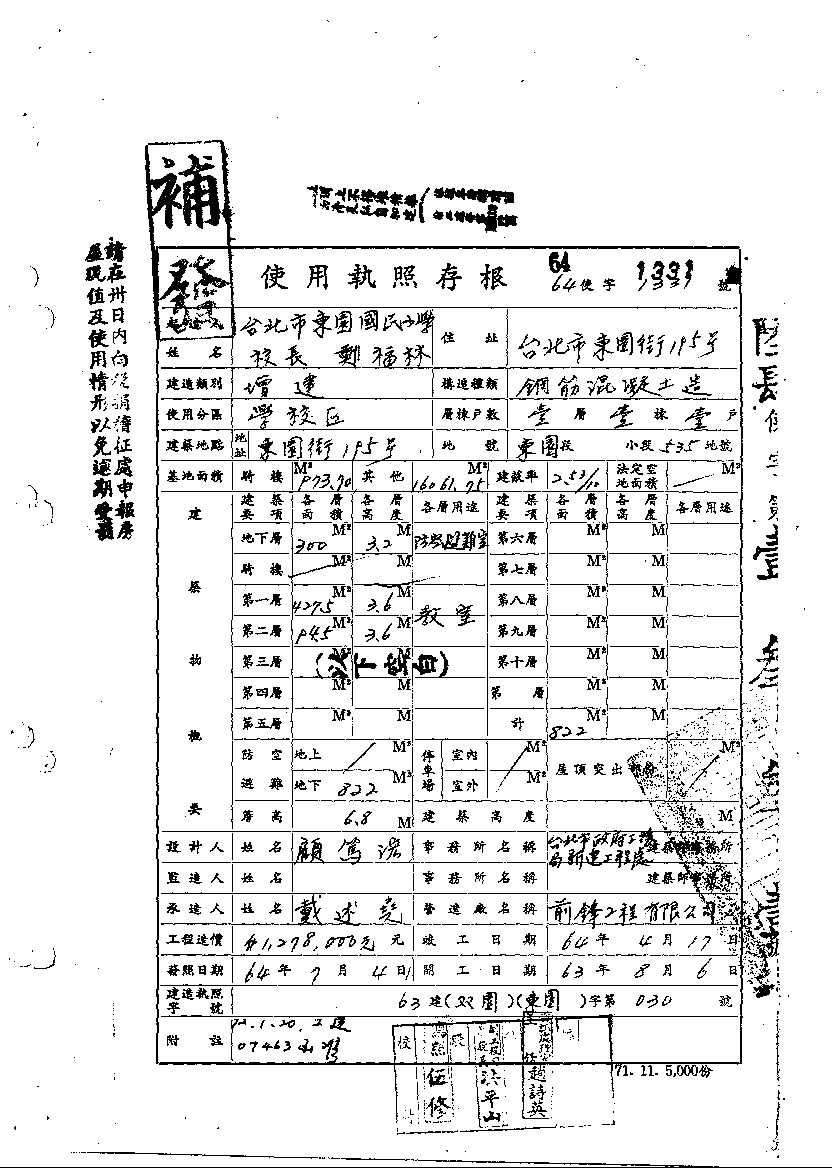 補
發
使用執照存根
64
64使字
1331
1331
號
姓名
台北市東園國民小學
校長 鄭福林
住址
台北市東園街195号
建造類別 增建 構造種類 鋼筋混凝土造
使用分區 學校區 層棟戶數 壹層壹棟壹戶
建築地點 地址 東園街195号 地號 東園段 小段535地號
基地面積 騎樓 M² 其他 16061.75 M² 建蔽率 法定空地面積 M²
建築物概要
建築要項 各層面積 各層高度 各層用途 建築要項 各層面積 各層高度 各層用途
地下層 300 M² 3.2 M 防空避難室 第六層 M² M
騎樓 M² M 第七層 M² M
第一層 427.5 M² 3.6 M 教室 第八層 M² M
第二層 94.5 M² 3.6 M 第九層 M² M
第三層 M² M 第十層 M² M
(以下空白)
第四層 M² M 第 層 M² M
第五層 M² M 計 822 M² M
防空避難 地上 M² 停車場 室內 M² 屋頂突出部份 M²
地下 822 M² 室外 M²
簷高 6.8 M 建築高度 M
設計人 姓名 顧篤 事務所名稱 台北市政府工務局新建工程處 建築師事務所
監造人 姓名 事務所名稱 建築師事務所
承造人 姓名 戴述堯 營造廠名稱 前鋒工程有限公司
工程造價 1,278,000元 元 竣工日期 64年4月17日
發照日期 64年7月4日 開工日期 63年8月6日
建造執照字號 63建(双園)(東園)字第030號
附註
72.1.20.
07463
校
伍修
洪平山
趙詩英
71.11.5,000份
請在卅日內向
處申報房
屋現值及使用情形以免逾期受罰